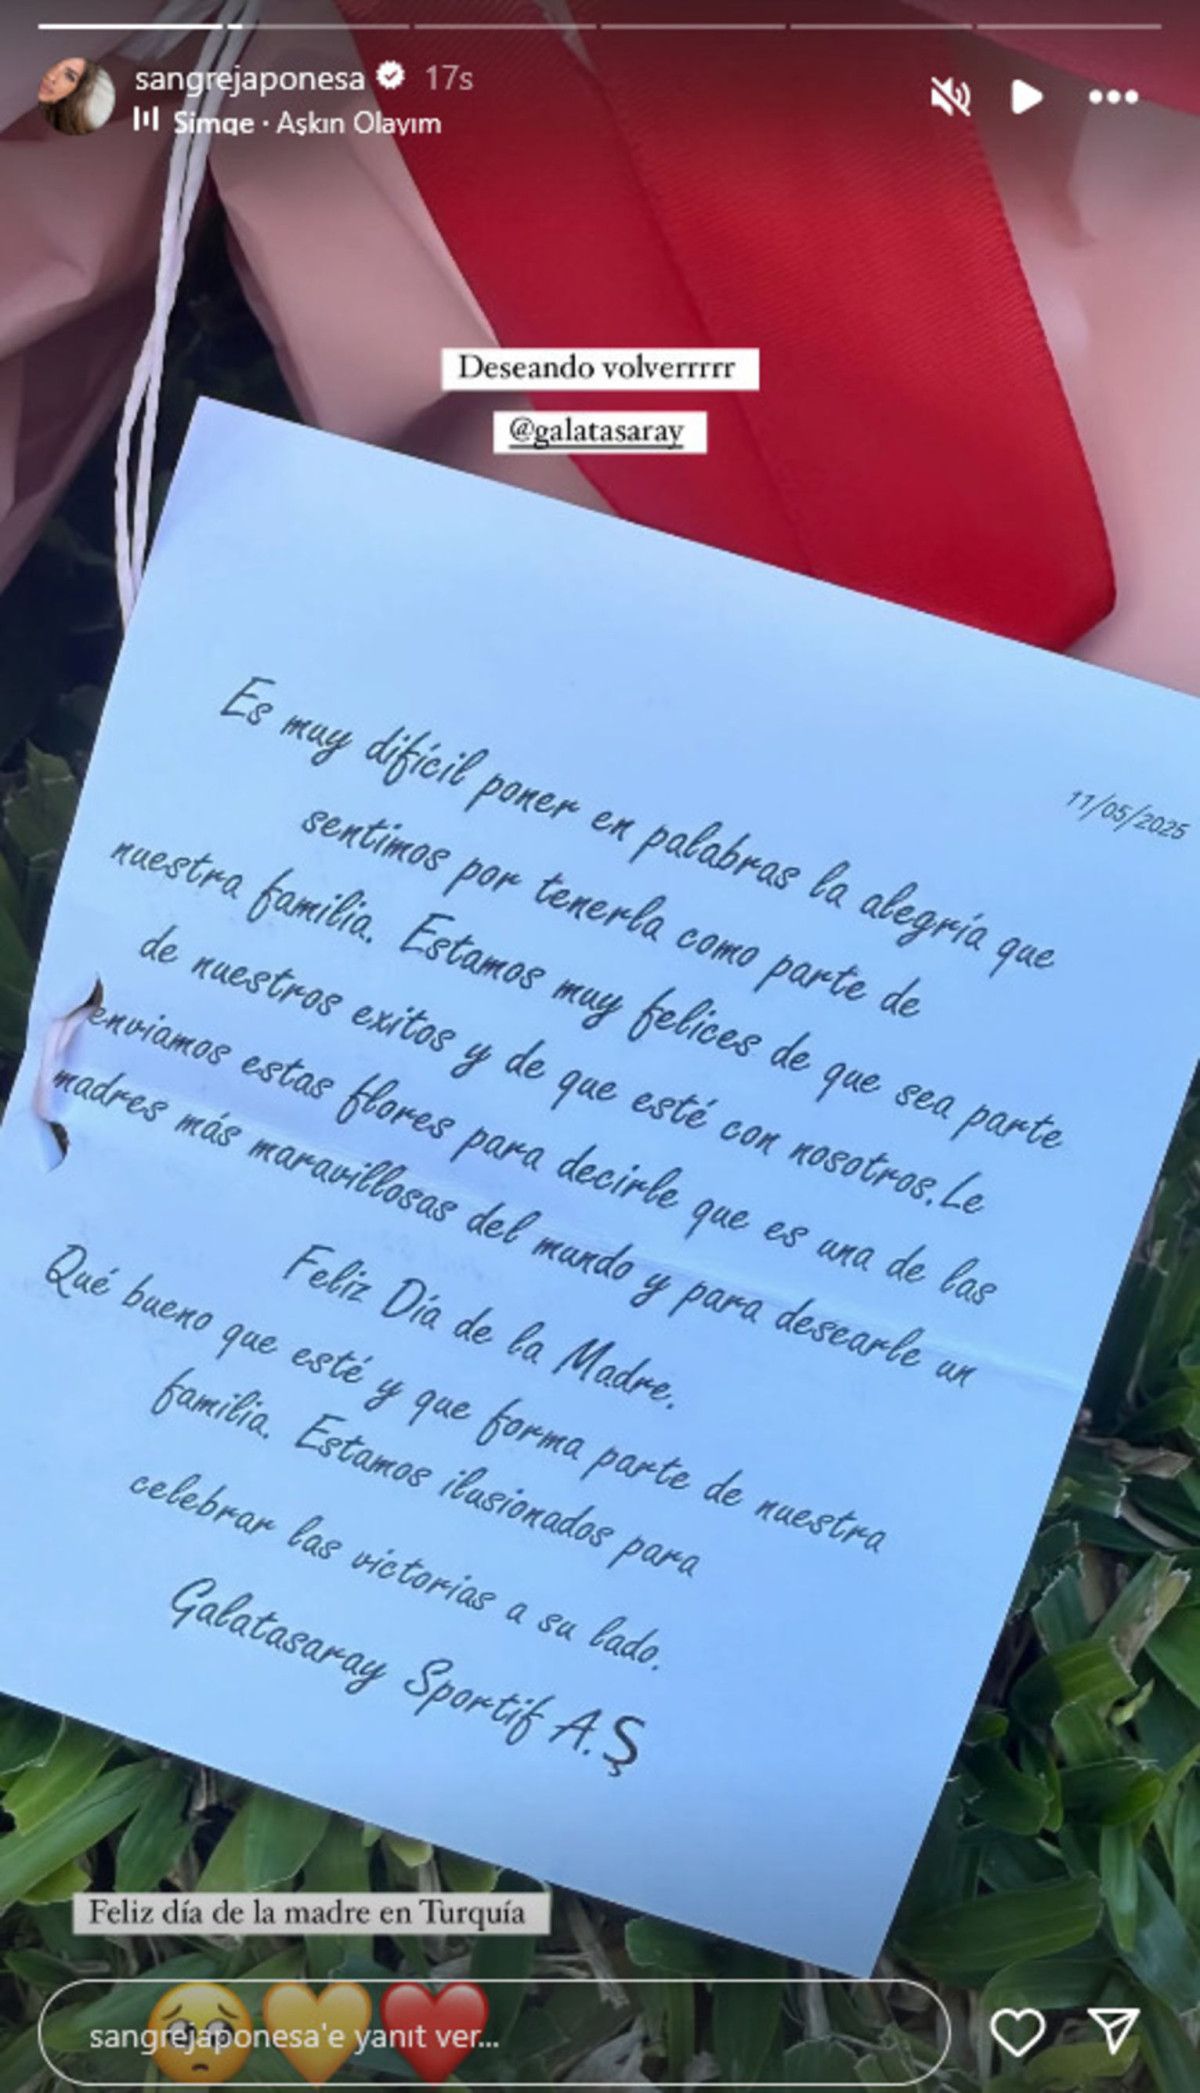 sangrejaponesa 17s
Simge · Aşkın Olayım
Deseando volverrrrr
@galatasaray
11/05/2025
Es muy difícil poner en palabras la alegría que
sentimos por tenerla como parte de
nuestra familia. Estamos muy felices de que sea parte
de nuestros exitos y de que esté con nosotros.Le
enviamos estas flores para decirle que es una de las
madres más maravillosas del mundo y para desearle un
Feliz Día de la Madre.
Qué bueno que esté y que forma parte de nuestra
familia. Estamos ilusionados para
celebrar las victorias a su lado.
Galatasaray Sportif A.Ş
Feliz día de la madre en Turquía
sangrejaponesa'e yanıt ver...